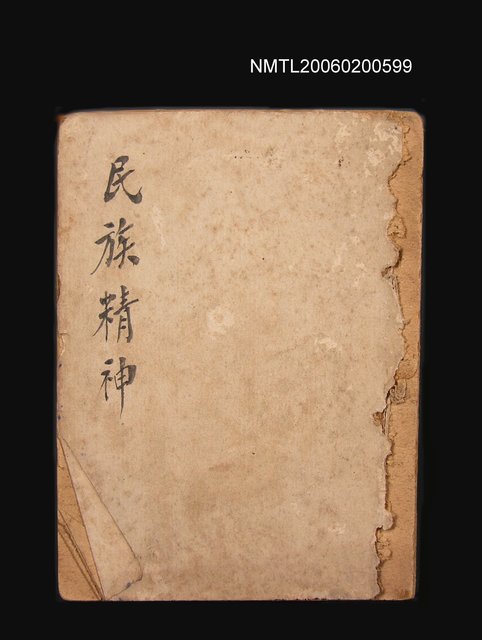 NMTL20060200599
民族精神